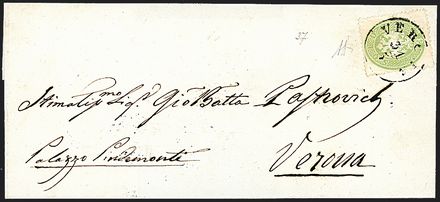 37
VERO
31
Stimatis.mo Sig.r Gio Batta Paskovich
Palazzo Pindemonti
Verona